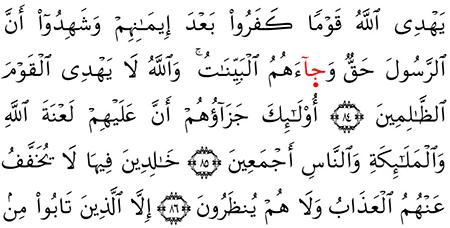 يَهْدِى ٱللَّهُ قَوْمًا كَفَرُوا۟ بَعْدَ إِيمَـٰنِهِمْ وَشَهِدُوٓا۟ أَنَّ
ٱلرَّسُولَ حَقٌّ وَجَآءَهُمُ ٱلْبَيِّنَـٰتُ ۚ وَٱللَّهُ لَا يَهْدِى ٱلْقَوْمَ
ٱلظَّـٰلِمِينَ ٨٤ أُو۟لَـٰٓئِكَ جَزَآؤُهُمْ أَنَّ عَلَيْهِمْ لَعْنَةَ ٱللَّهِ
وَٱلْمَلَـٰٓئِكَةِ وَٱلنَّاسِ أَجْمَعِينَ ٨٥ خَـٰلِدِينَ فِيهَا لَا يُخَفَّفُ
عَنْهُمُ ٱلْعَذَابُ وَلَا هُمْ يُنظَرُونَ ٨٦ إِلَّا ٱلَّذِينَ تَابُوا۟ مِنۢ